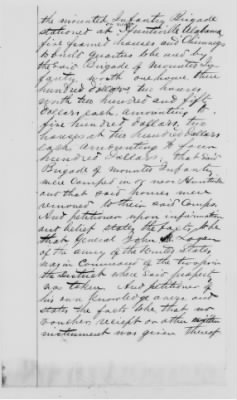 the mounted Infantry Brigade
stationed at Huntsville Alabama
five framed houses and Chimneys
to build quarters &c used by
the said Brigade of Mounted In-
fantry, worth one house three
hundred dollars two houses
worth two hundred and fifty
dollars each, amounting to
five hundred dollars, two
houses at two hundred dollars
each amounting to four
hundred dollars, that said
Brigade of mounted Infantry
were Camped in or near Huntsville
and that said houses were
removed to their said Camps
And petitioner upon information
and belief states the facts to be
that General John A Logan
of the army of the United States
was in Command of the troops in
the District where said property
was taken. And petitioner of
his own knowledge avers and
states the facts to be that no
voucher receipt or other written
instrument was given thereof